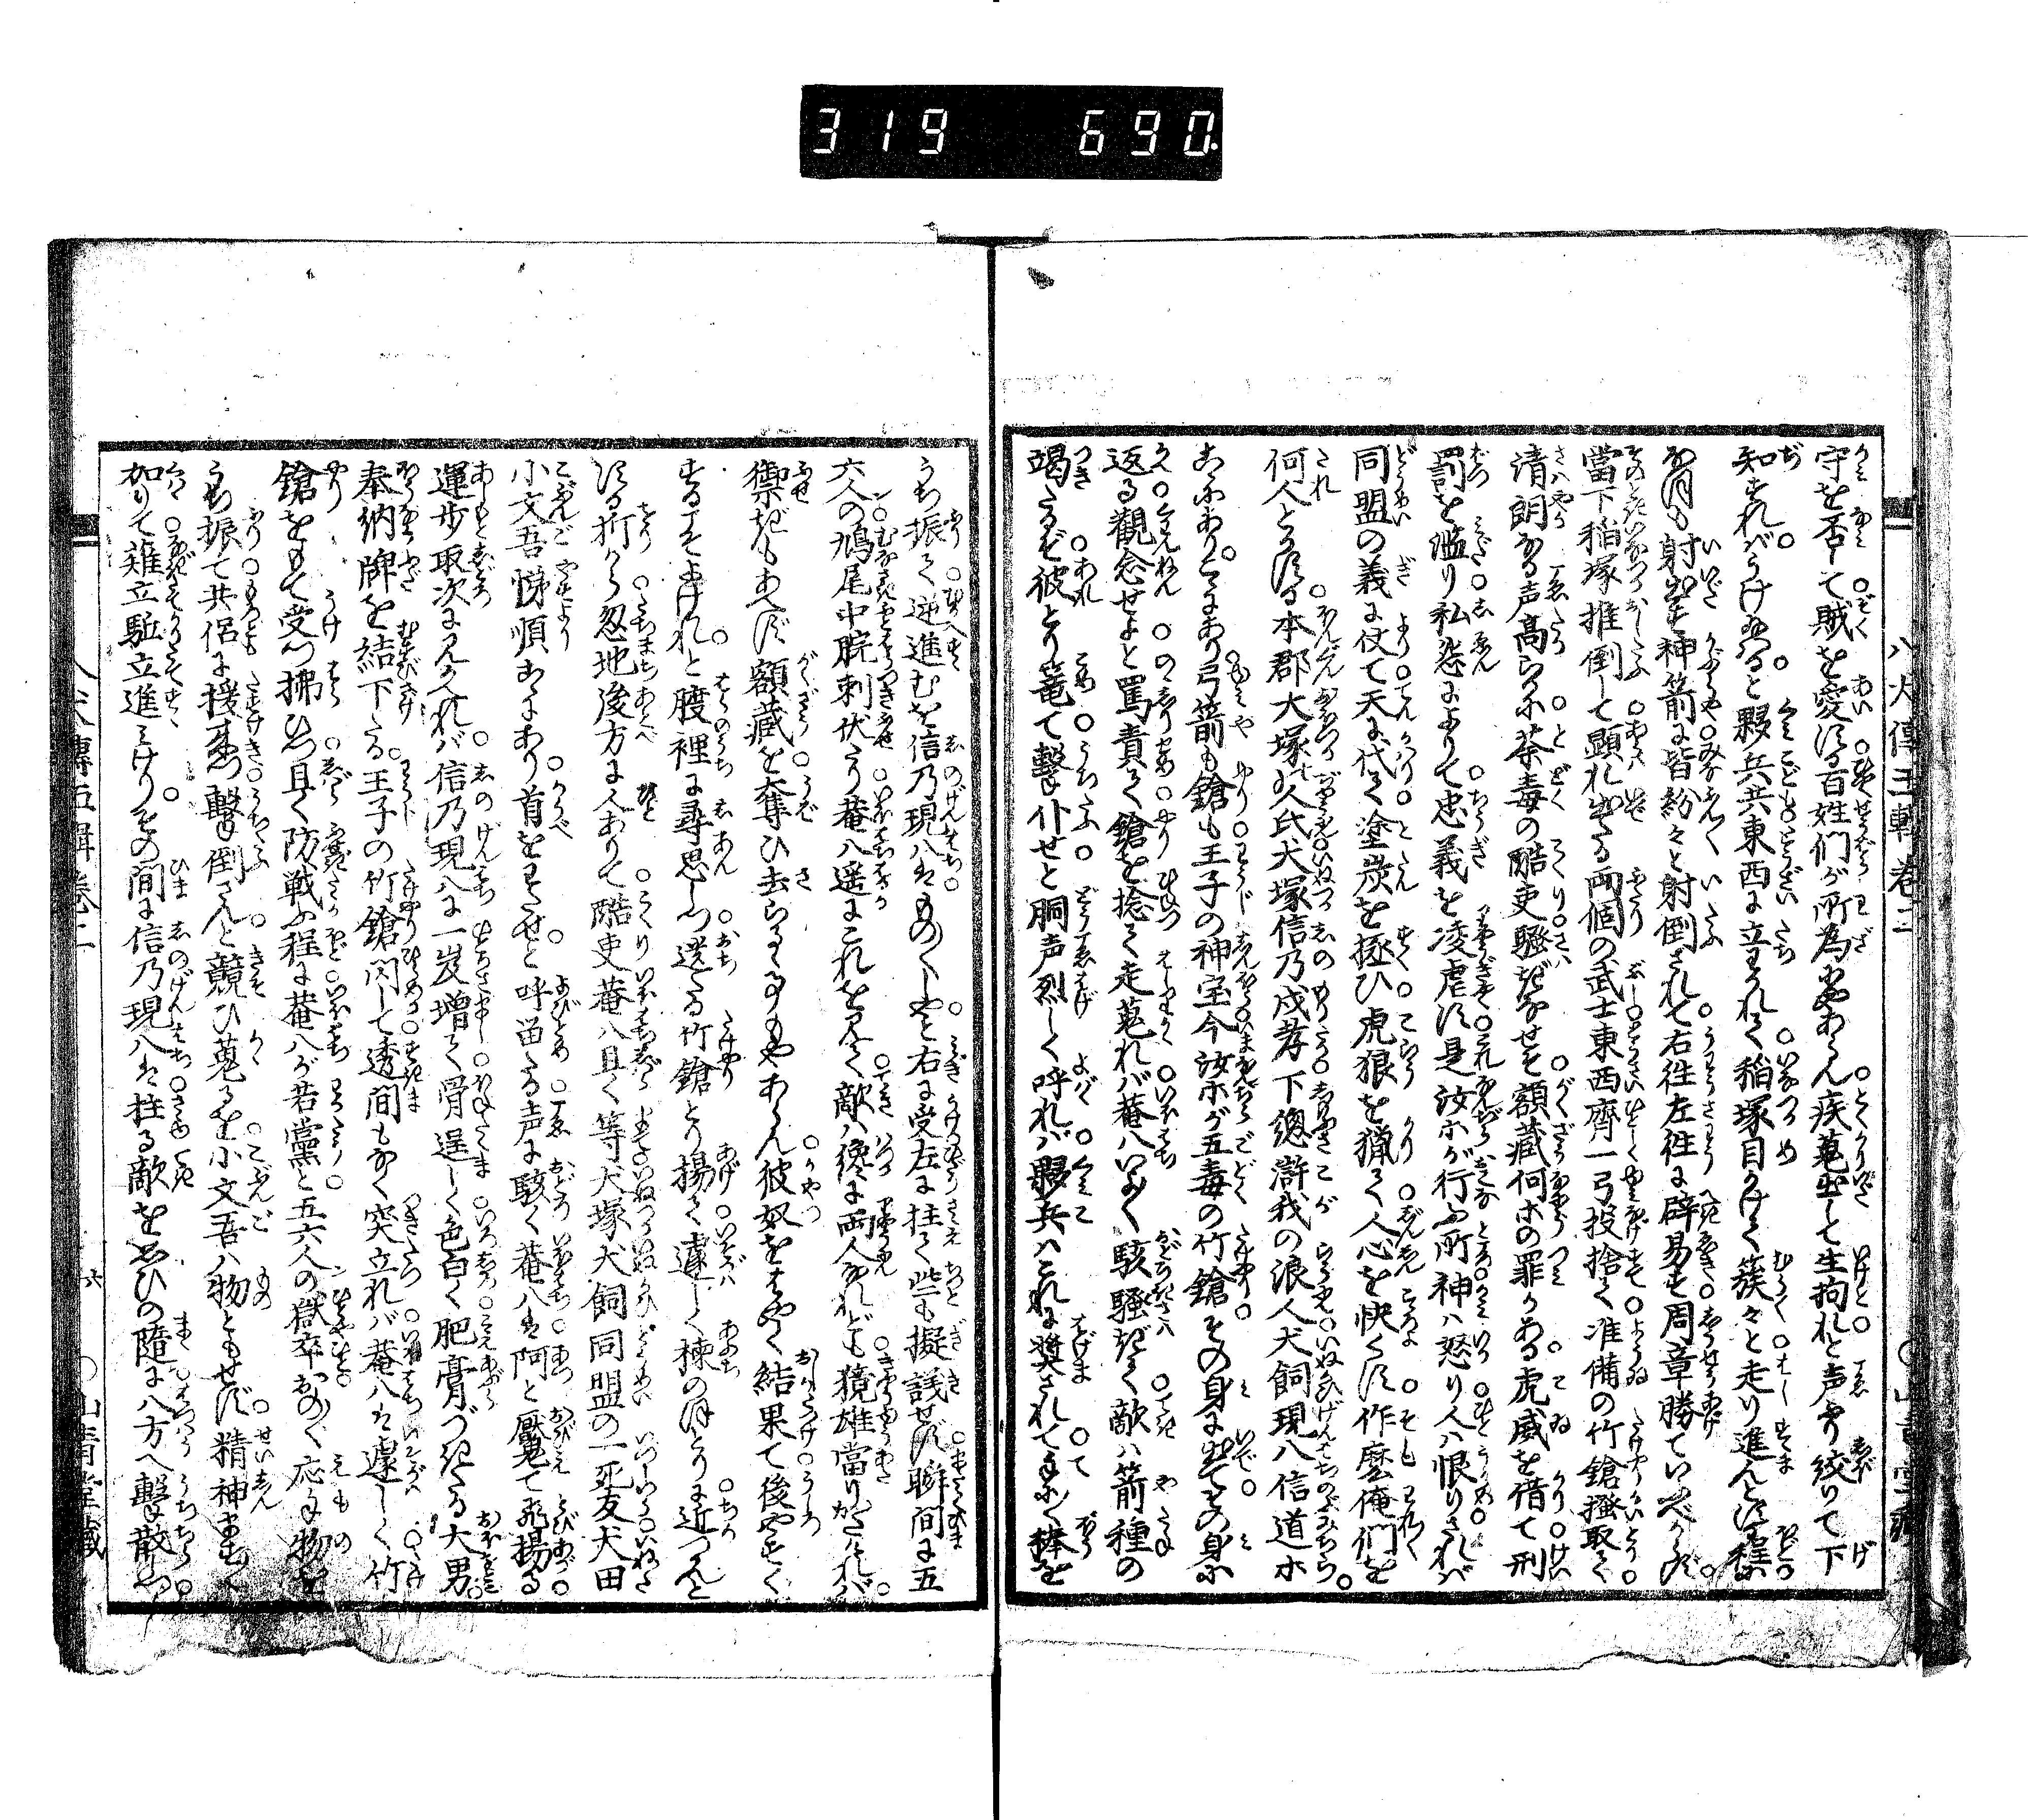 319 690
守を否して賊を愛する百姓們が所為にやあらん疾蒐出て生拘れと声ふり絞りて下
知すればうけ給ると夥兵共東西に立わかれて稲塚目かけて簇々と走り進んとする程に
射出す神箭に皆紛々と射倒されて右往左往に辟易す周章勝ていふべからず
當下稲塚推倒して顕れ出たる両個の武士東西齊一弓投捨て准備の竹鎗掻取て
清朗なる声高らかに荼毒の酷吏騒ぎなせそ額藏何等の罪かある虎威を借て刑
罰を濫り私怨によりて忠義を凌虐す是汝等が行ふ所神は怒り人は恨りされば
同盟の義に仗て天に代て塗炭を拯ひ虎狼を猟て人心を快くす作麼俺們を
何人とかする本郡大塚の人氏犬塚信乃戍孝下總滸我の浪人犬飼現八信道等
こゝにありこゝにあり弓箭も鎗も王子の神宝今汝等が五毒の竹鎗その身に出てその身に
返る觀念せよと罵責て鎗を捻て走蒐れば菴八いよゝ駭騒ぎて敵は箭種の
竭たるぞ彼とり篭て撃仆せと胴声烈しく呼れば夥兵はこれに奬されて手に手に棒を
うち振て逆進むを信乃現八はものゝしやと右に受左に拄て些も擬議せず瞬間に五
六人の鳩尾中脘刺伏たり菴八遥にこれを見て敵は纔に両人なれども獷雄當りかたければ
禦ぎもあへず額藏を奪ひ去らるゝ事もやあらん彼奴をはやく結果て後やすく
するこそよけれと肚裡に尋思しつ遺たる竹鎗とり揚て遽しく楝のほとりに近つんと
する折から忽地後方に人ありて酷吏菴八且く等犬塚犬飼同盟の一死友犬田
小文吾悌順こゝにあり首をわたせと呼畄たる声に駭く菴八は阿と魘て飛揚る
運歩取次に見かへれば信乃現八に一岌増て骨逞しく色白く肥膏づきたる大男
奉納牌を結下たる王子の竹鎗閃して透間もなく突立れば菴八は遽しく竹
鎗をもて受つ拂ひつ且く防戦ふ程に菴八が若黨と五六人の獄卒おのおの応手物を
うち振て共侶に援来つ撃倒さんと競ひ蒐るを小文吾は物ともせず精神ますく
加りて薙立駈立進みけりその間に信乃現八は拄る敵を思ひの隨に八方へ撃散しつ
八犬傳五輯卷二
六
○山青堂藏